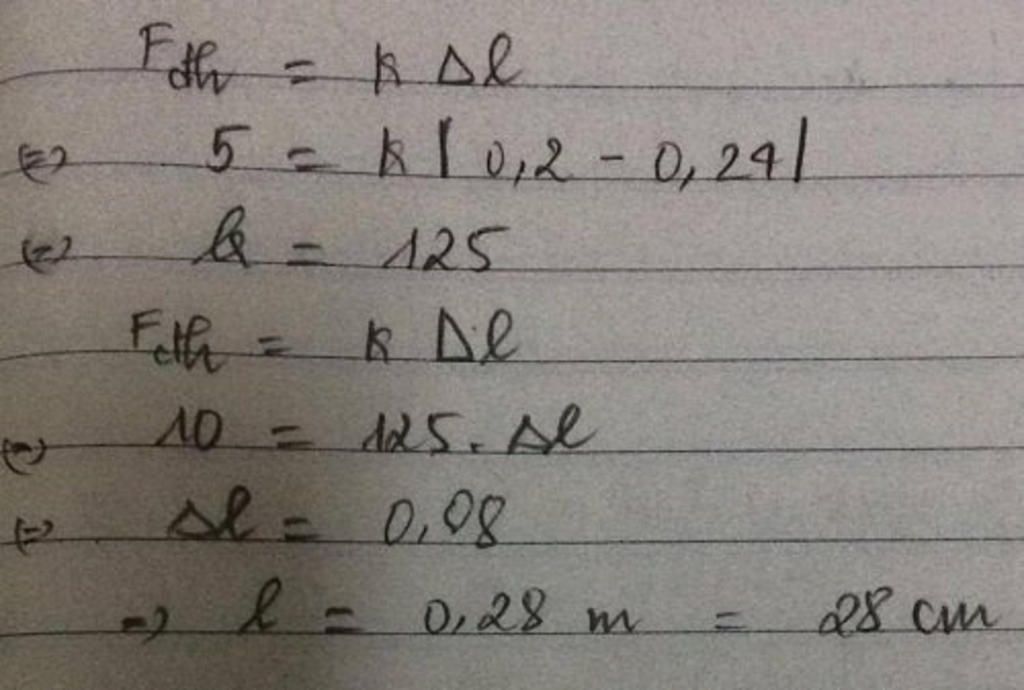 Fđh = k Δl
<=> 5 = k | 0,2 - 0,24 |
<=> k = 125
Fđh = k Δl
<=> 10 = 125. Δl
<=> Δl = 0,08
=> l = 0,28 m = 28 cm